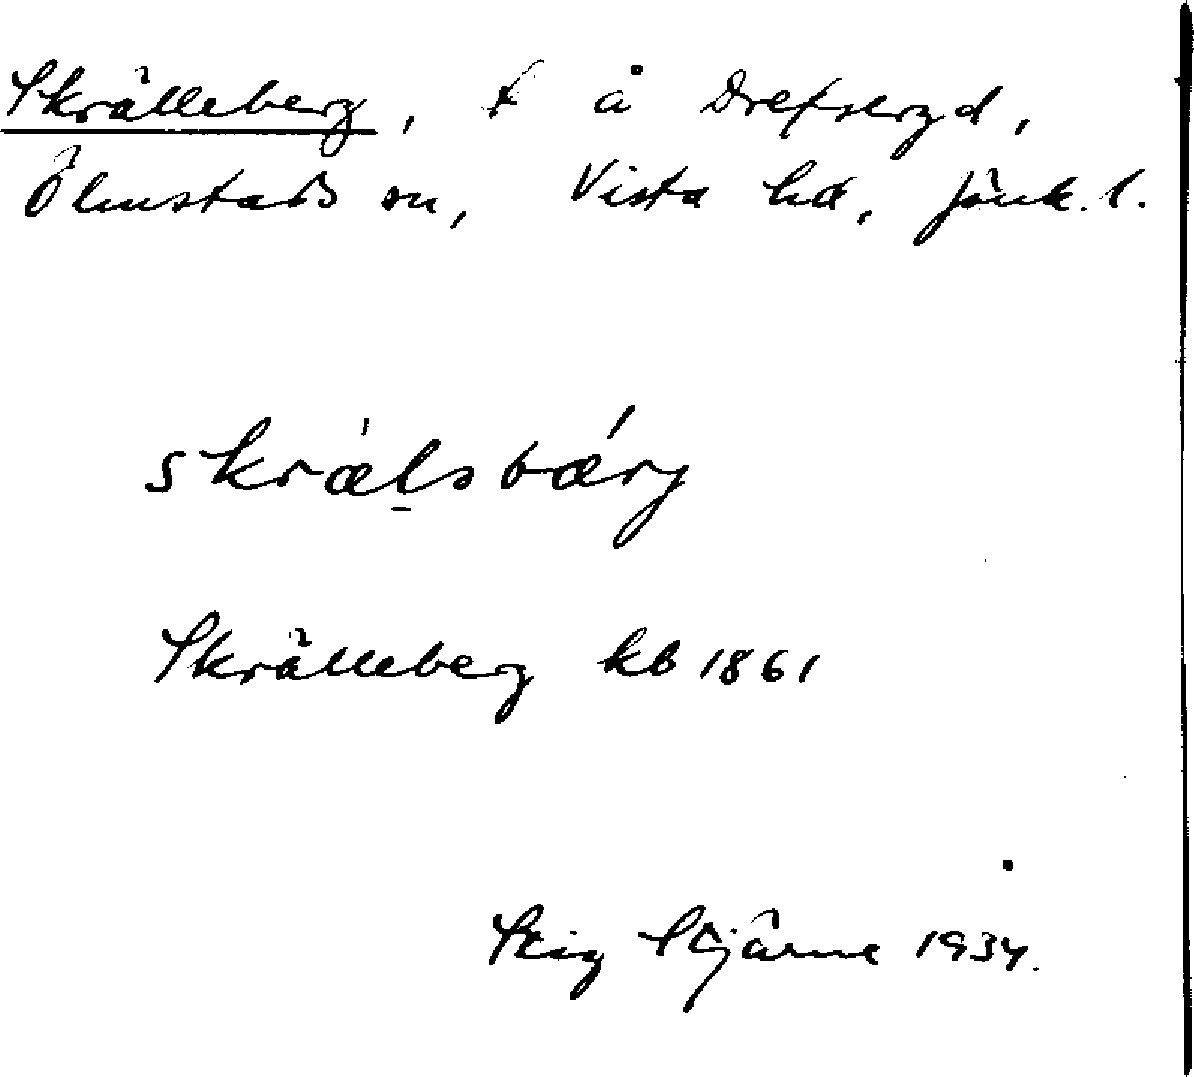 Skrälleberg, t å Drefseryd,
Ölmstads sn, Vista hd, Jönk. l.
skrälsbärj
Skrälleberg kb 1861
Stig Stjärne 1934.